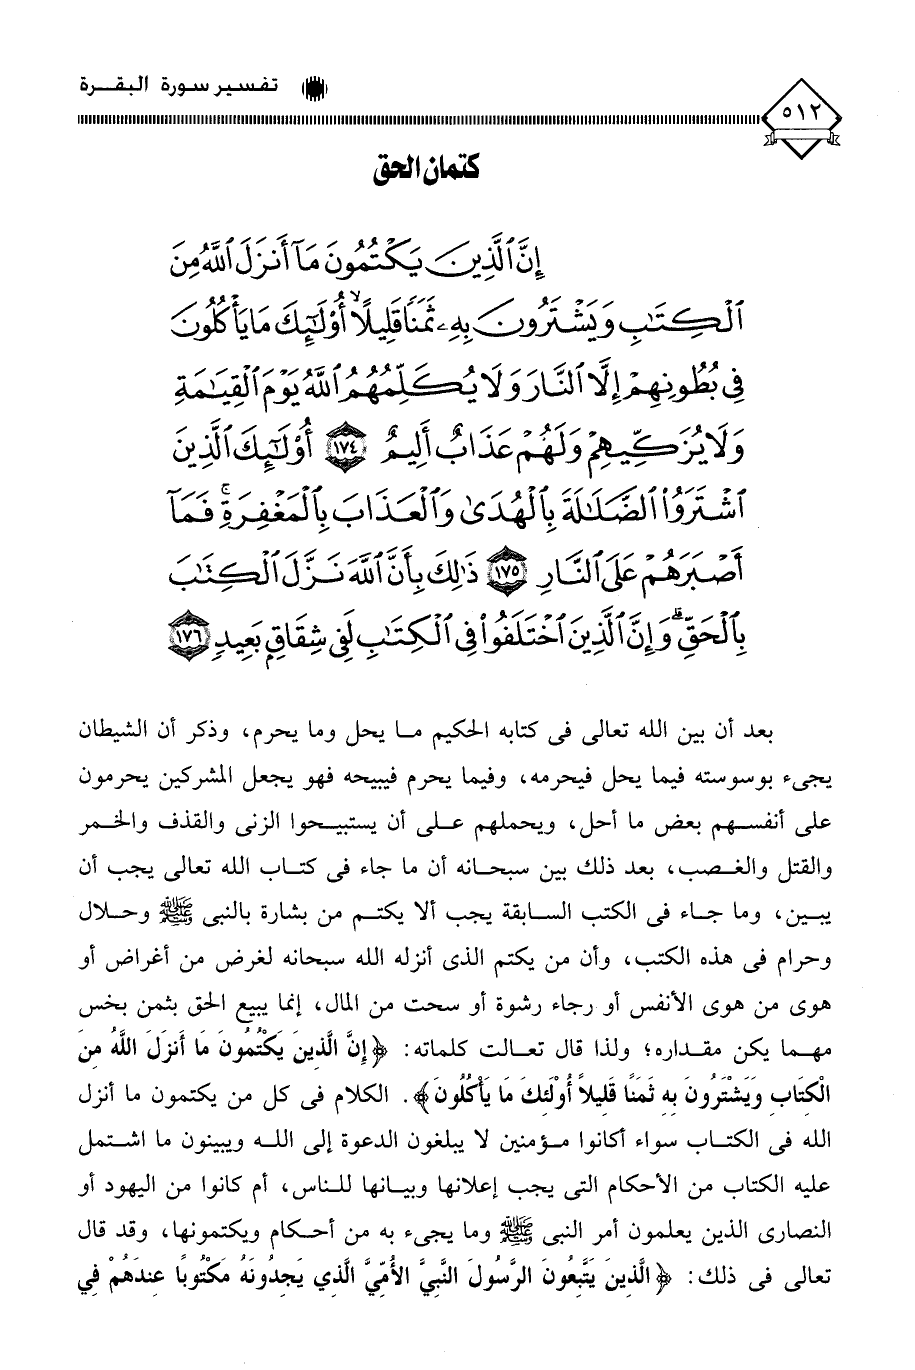 تفسير سورة البقرة
٥١٢
كتمان الحق
إِنَّ ٱلَّذِينَ يَكْتُمُونَ مَآ أَنزَلَ ٱللَّهُ مِنَ
ٱلْكِتَٰبِ وَيَشْتَرُونَ بِهِۦ ثَمَنًا قَلِيلًا ۙ أُو۟لَٰٓئِكَ مَا يَأْكُلُونَ
فِى بُطُونِهِمْ إِلَّا ٱلنَّارَ وَلَا يُكَلِّمُهُمُ ٱللَّهُ يَوْمَ ٱلْقِيَٰمَةِ
وَلَا يُزَكِّيهِمْ وَلَهُمْ عَذَابٌ أَلِيمٌ ١٧٤ أُو۟لَٰٓئِكَ ٱلَّذِينَ
ٱشْتَرَوُا۟ ٱلضَّلَٰلَةَ بِٱلْهُدَىٰ وَٱلْعَذَابَ بِٱلْمَغْفِرَةِ ۚ فَمَآ
أَصْبَرَهُمْ عَلَى ٱلنَّارِ ١٧٥ ذَٰلِكَ بِأَنَّ ٱللَّهَ نَزَّلَ ٱلْكِتَٰبَ
بِٱلْحَقِّ ۗ وَإِنَّ ٱلَّذِينَ ٱخْتَلَفُوا۟ فِى ٱلْكِتَٰبِ لَفِى شِقَاقٍۭ بَعِيدٍ ١٧٦
بعد أن بين الله تعالى فى كتابه الحكيم ما يحل وما يحرم، وذكر أن الشيطان
يجىء بوسوسته فيما يحل فيحرمه، وفيما يحرم فيبيحه فهو يجعل المشركين يحرمون
على أنفسهم بعض ما أحل، ويحملهم على أن يستبيحوا الزنى والقذف والخمر
والقتل والغصب، بعد ذلك بين سبحانه أن ما جاء فى كتاب الله تعالى يجب أن
يبين، وما جاء فى الكتب السابقة يجب ألا يكتم من بشارة بالنبى ﷺ وحلال
وحرام فى هذه الكتب، وأن من يكتم الذى أنزله الله سبحانه لغرض من أغراض أو
هوى من هوى الأنفس أو رجاء رشوة أو سحت من المال، إنما يبيع الحق بثمن بخس
مهما يكن مقداره؛ ولذا قال تعالت كلماته: ﴿إِنَّ الَّذِينَ يَكْتُمُونَ مَا أَنزَلَ اللَّهُ مِنَ
الْكِتَابِ وَيَشْتَرُونَ بِهِ ثَمَنًا قَلِيلاً أُوْلَئِكَ مَا يَأْكُلُونَ﴾. الكلام فى كل من يكتمون ما أنزل
الله فى الكتاب سواء أكانوا مؤمنين لا يبلغون الدعوة إلى الله ويبينون ما اشتمل
عليه الكتاب من الأحكام التى يجب إعلانها وبيانها للناس، أم كانوا من اليهود أو
النصارى الذين يعلمون أمر النبى ﷺ وما يجىء به من أحكام ويكتمونها، وقد قال
تعالى فى ذلك: ﴿الَّذِينَ يَتَّبِعُونَ الرَّسُولَ النَّبِيَّ الأُمِّيَّ الَّذِي يَجِدُونَهُ مَكْتُوبًا عِندَهُمْ فِي